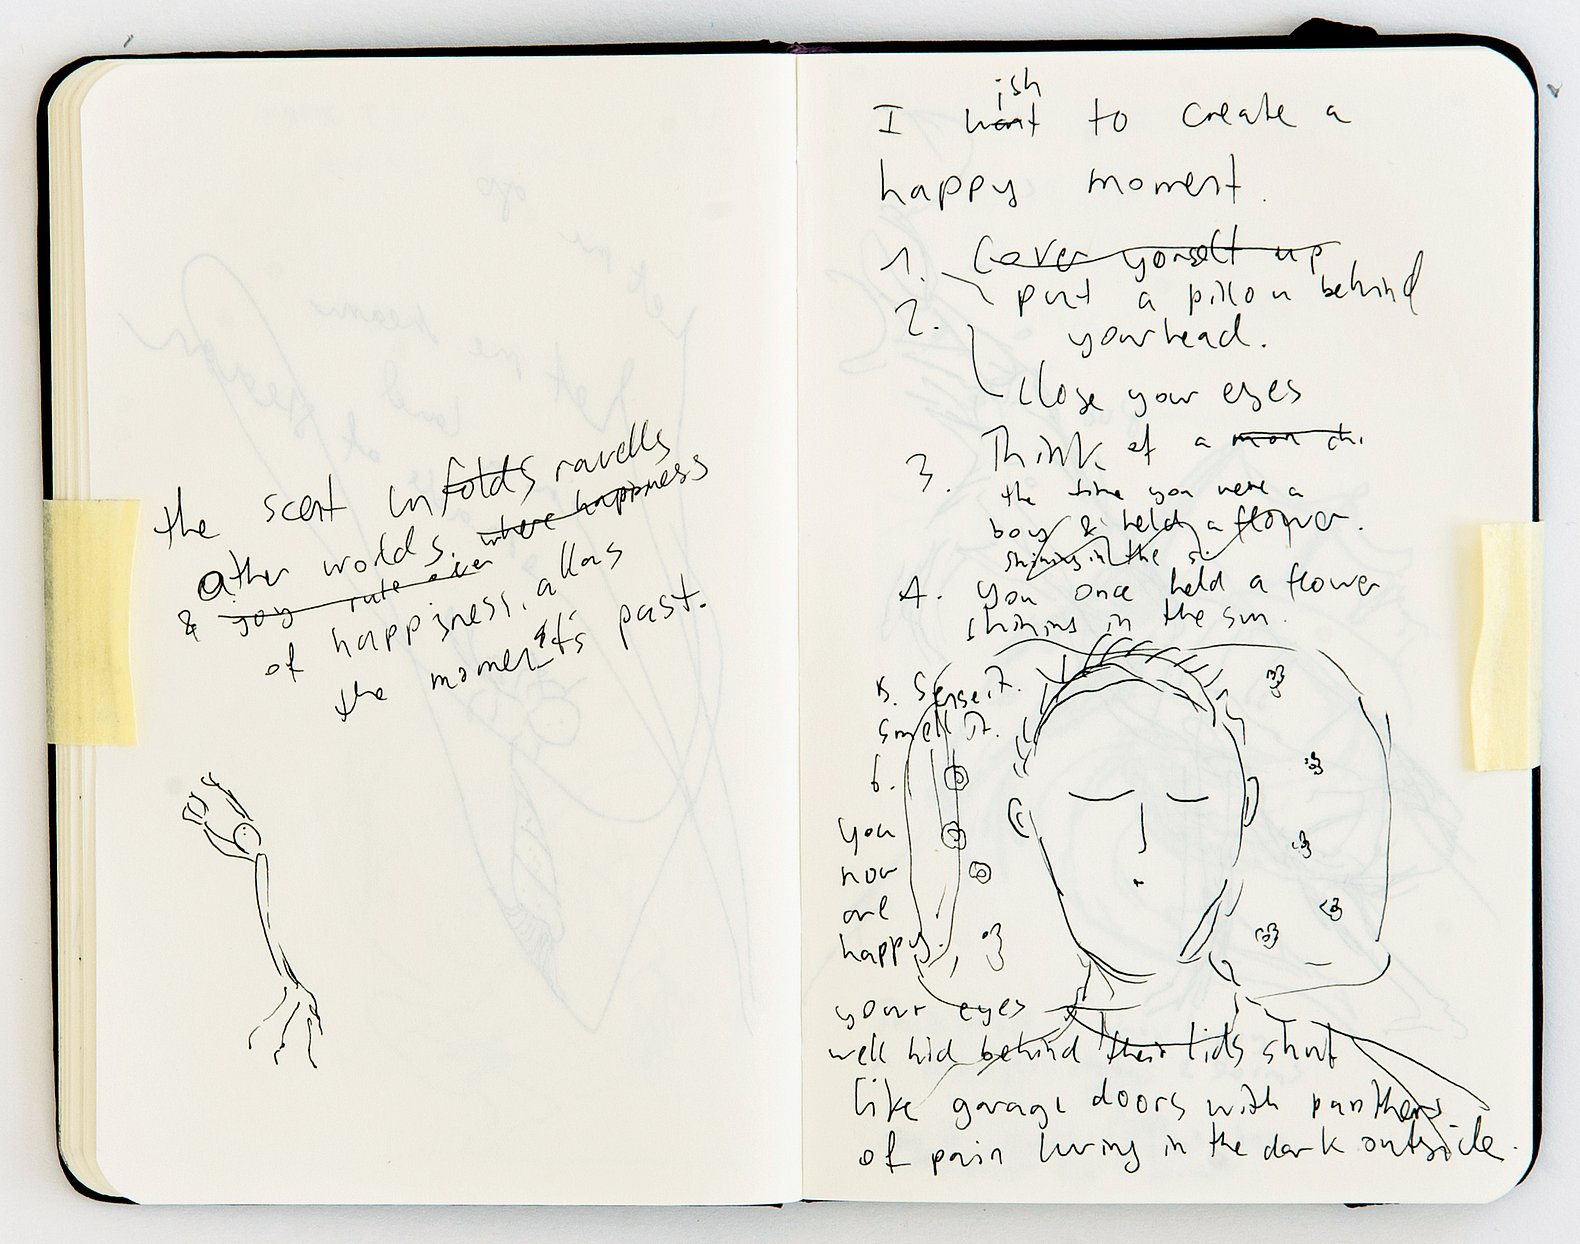 the scent unfolds ravells
other worlds. where happiness
& joy rule over
of happiness, allas
the moment's past.
ish
I want to create a
happy moment.
1. Cover yorself up
put a pillow behind
2. your head.
close your eyes
3. Think of a
the time you were a
boy & held a flower.
shining in the
4. you once held a flower
shining in the sun.
5. Sense it.
smell it.
6.
you
now
are
happy.
your eyes
well hid behind their lids shut
like garage doors with panthers
of pain luring in the dark outside.